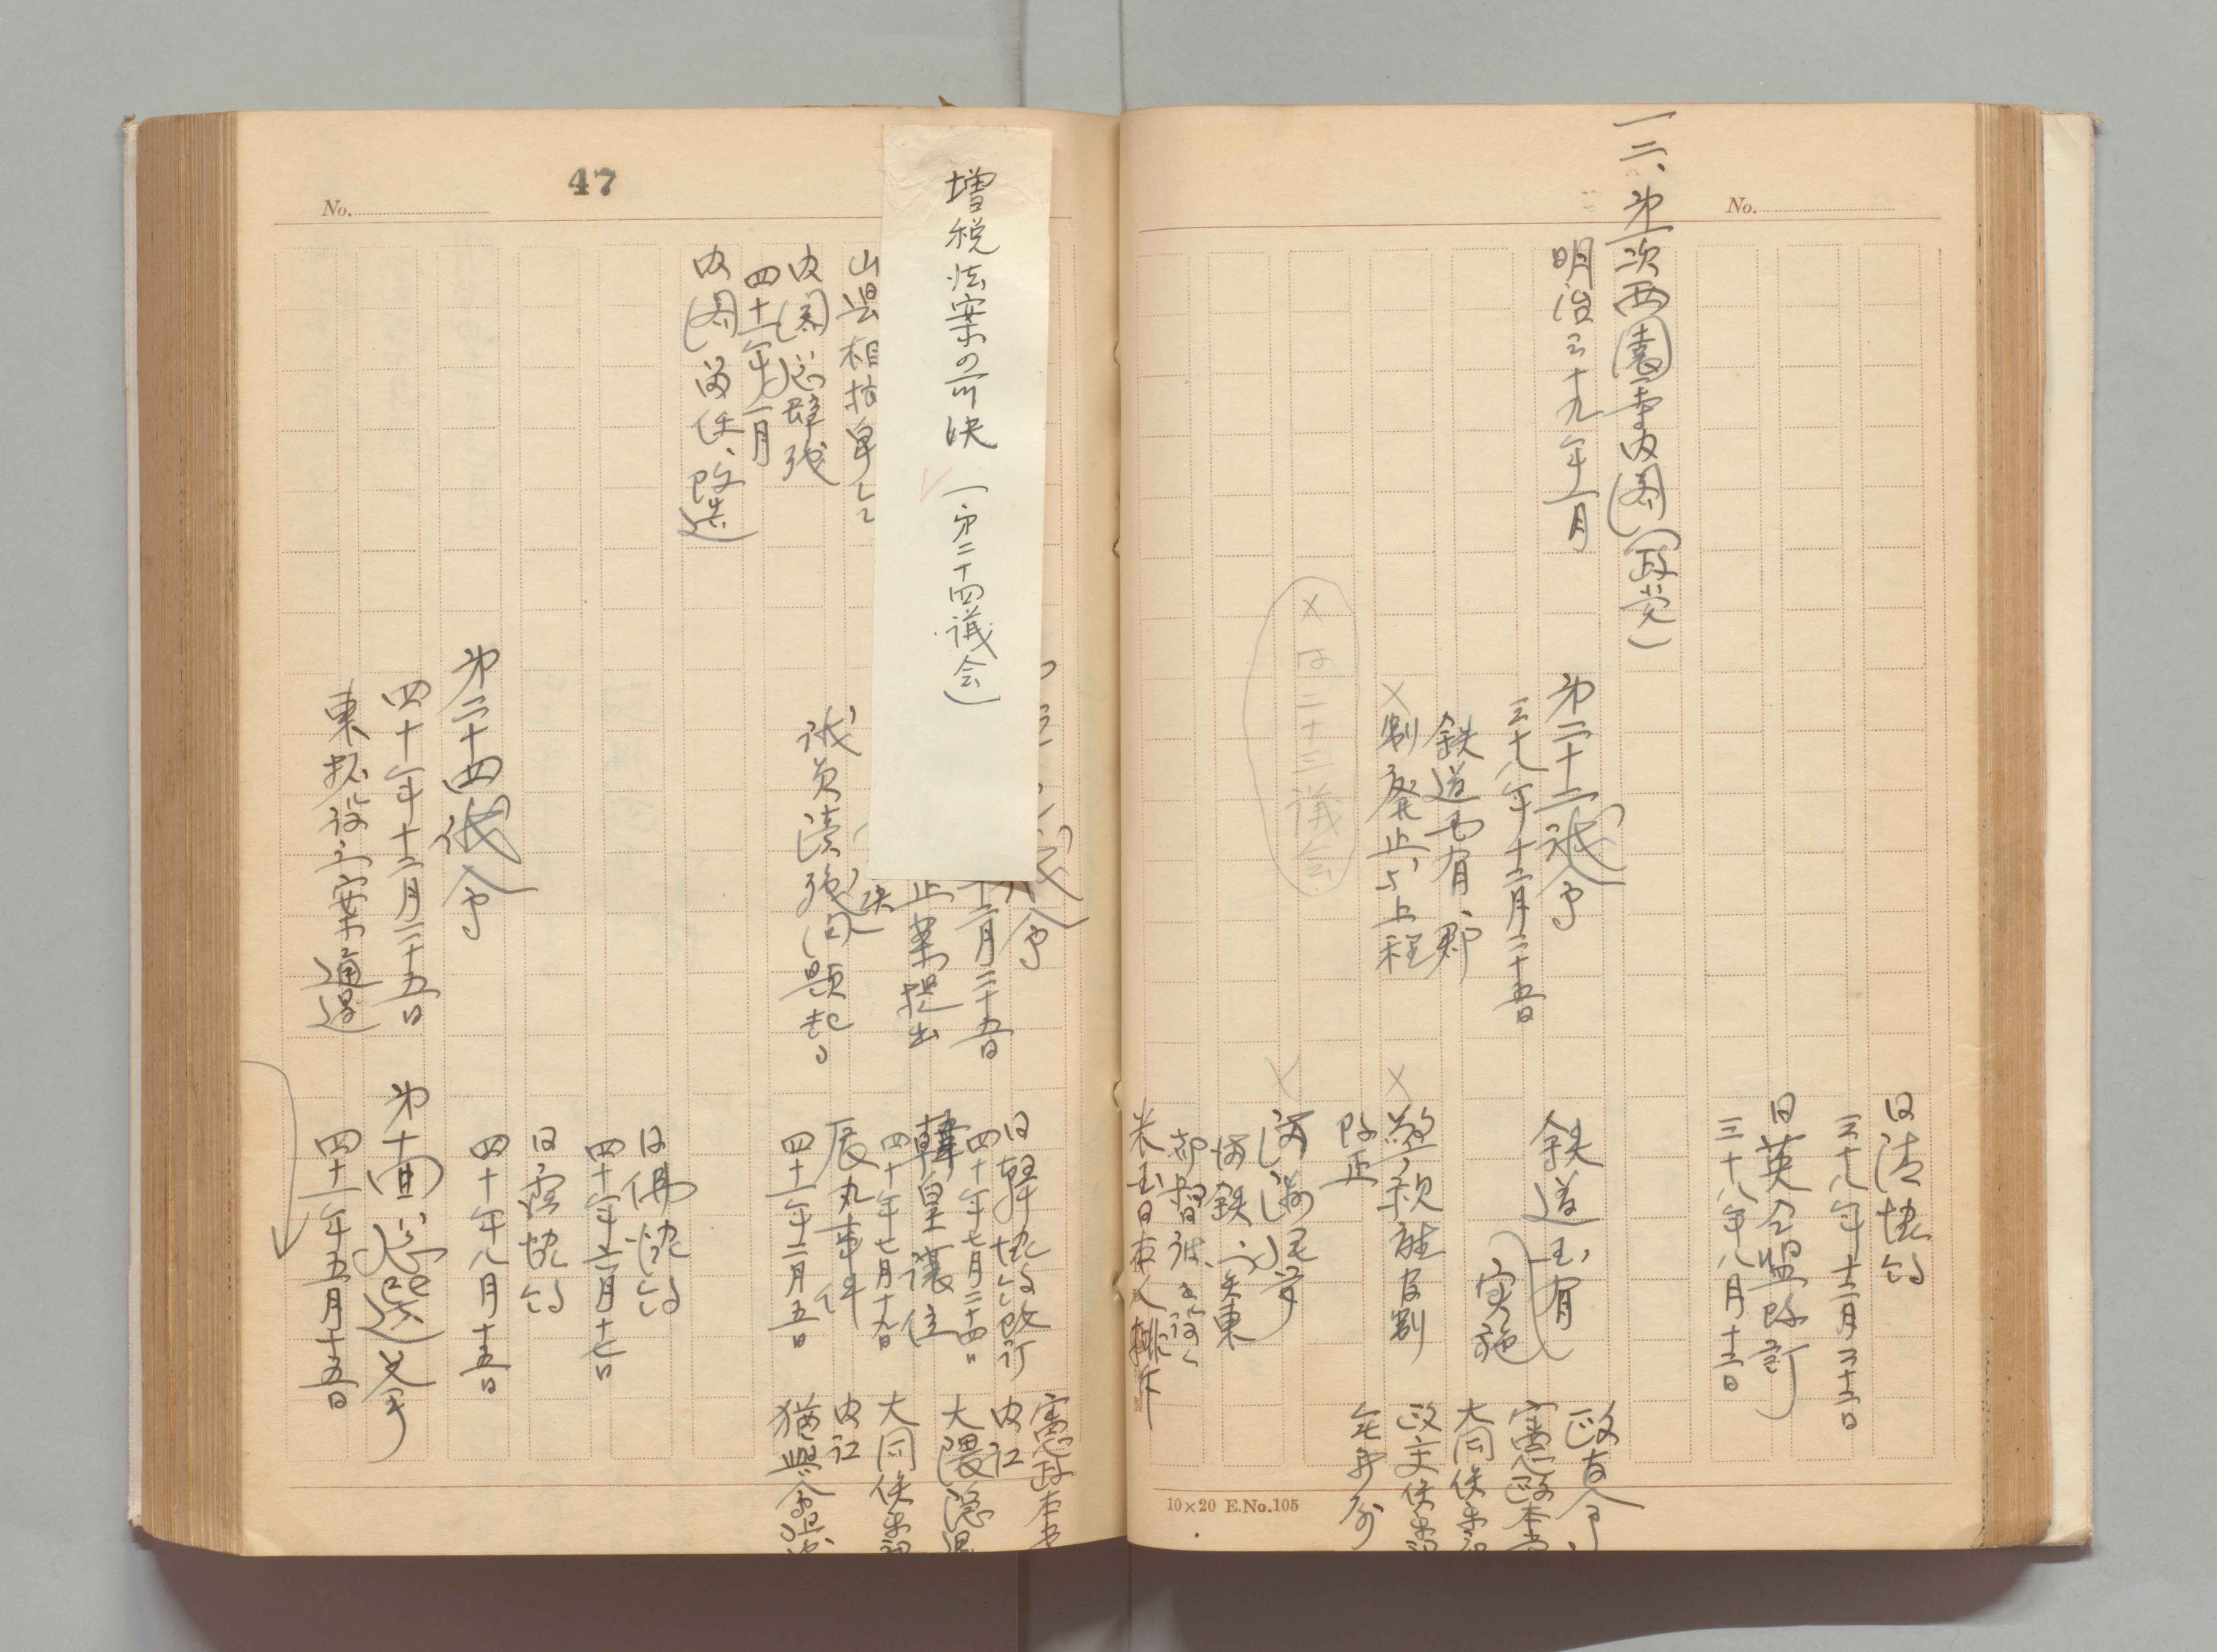 No.
一二、第一次西園寺内閣(政党)
明治三十九年一月
第二十二議会
三十八年十二月二十五日
鉄道国有、郡
×制廃止、上程
×は二十三議会
日清協約
三十八年十二月二十二日
日英同盟改訂
三十八年八月十二日
鉄道国有
実施
×
改正
×
満鉄、関東
都督被を設く
米国日本人排斥
政友会
憲政本党
大同倶楽部
政交倶楽部
無所属
10×20 E.No.105
47
No.
増税法案の可決 (第二十四議会)
議会
十二月二十五日
止案提出
決
議員涜職問題起る
内閣総辞職
四十一年一月
内閣留任、改造
日韓協約改訂
四十年七月二十四日
韓皇譲位
四十年七月十九日
辰丸事件
四十一年二月五日
日佛協約
四十年六月十七日
日露協約
四十年八月十五日
憲政本党
内訌
大隈隠退
大同倶楽部
内訌
猶興会
第二十四議会
四十年十二月二十五日
東拓設立案通過
第十回総選挙
四十一年五月十五日